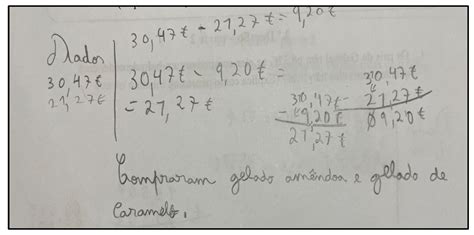 30,47€ - 21,27€ = 9,20€
Dados
30,47€
21,27€
30,47€ - 9,20€ =
= 21,27€
30,47€ -
- 9,20€
21,27€
30,47€
21,27€
09,20€
Compraram gelado amêndoa e gelado de
Caramelo.